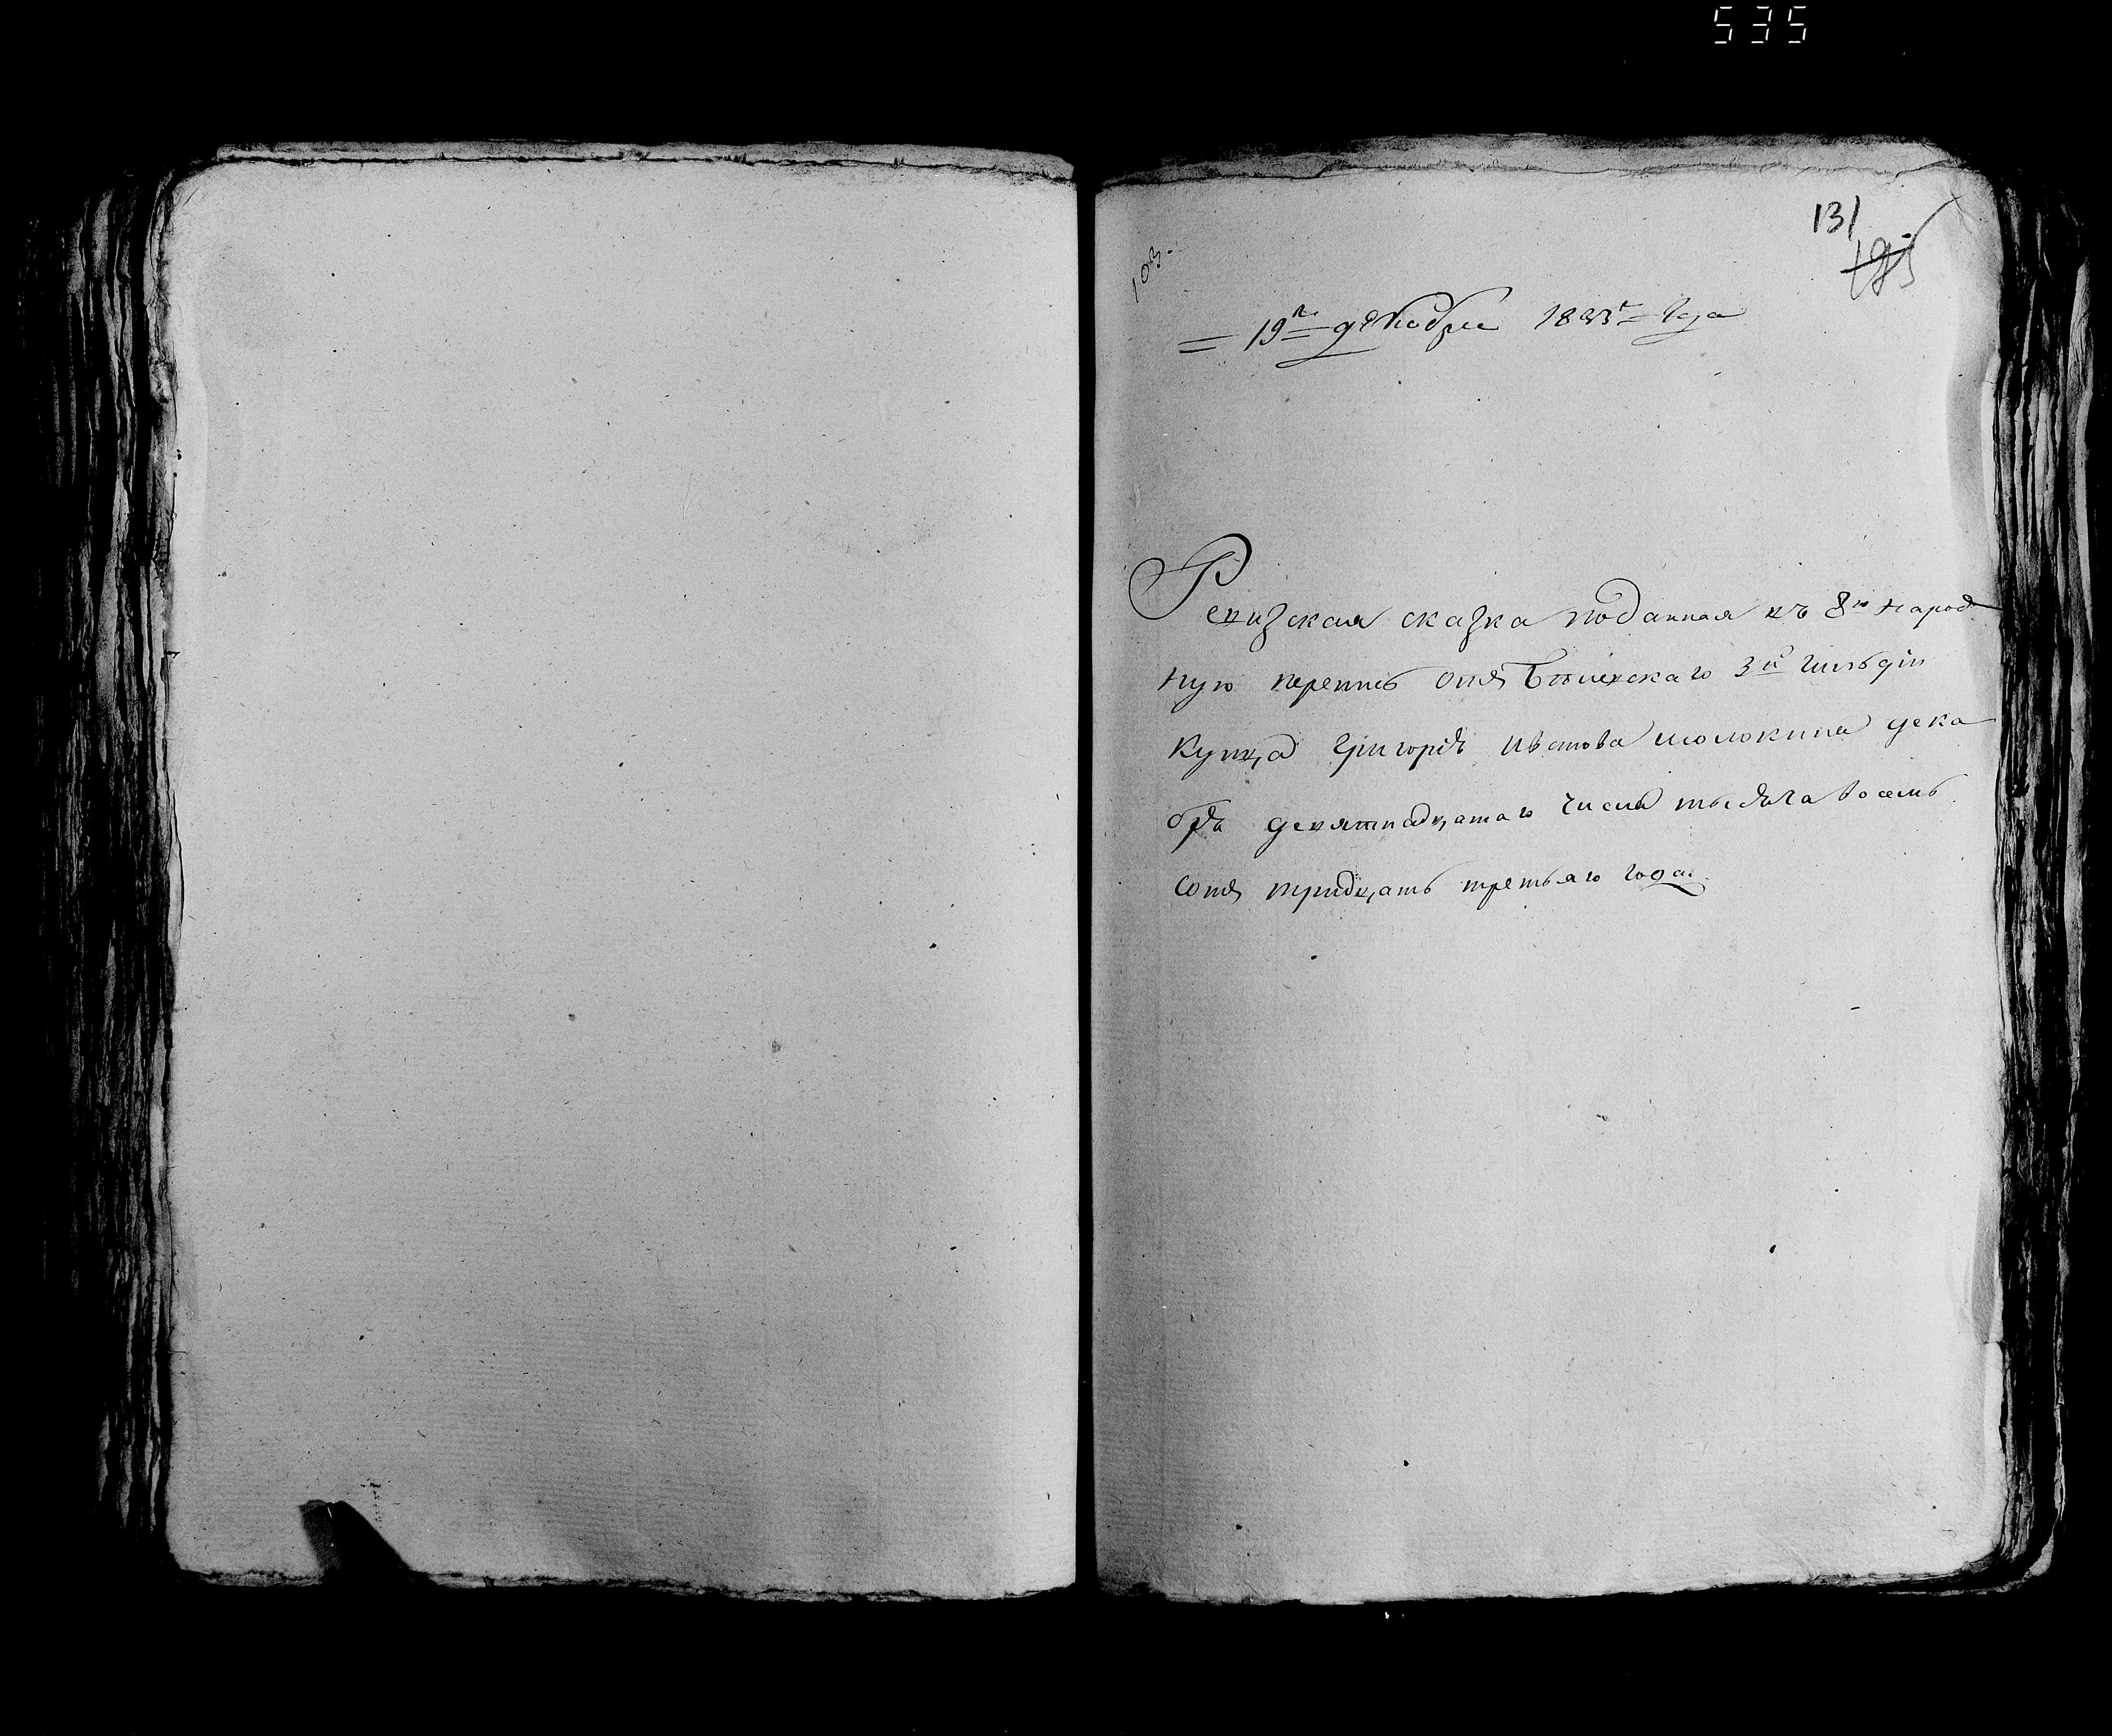 535
131
195
103.
= 19го декабря 1833го Года
Ревизская сказка поданная къ 8ю народ
ную перепись отъ 3й гильдіи
купца Григорія молокина дека
бря девятнадцатаго числа тысяча восемь
сотъ тридцать третьяго года.